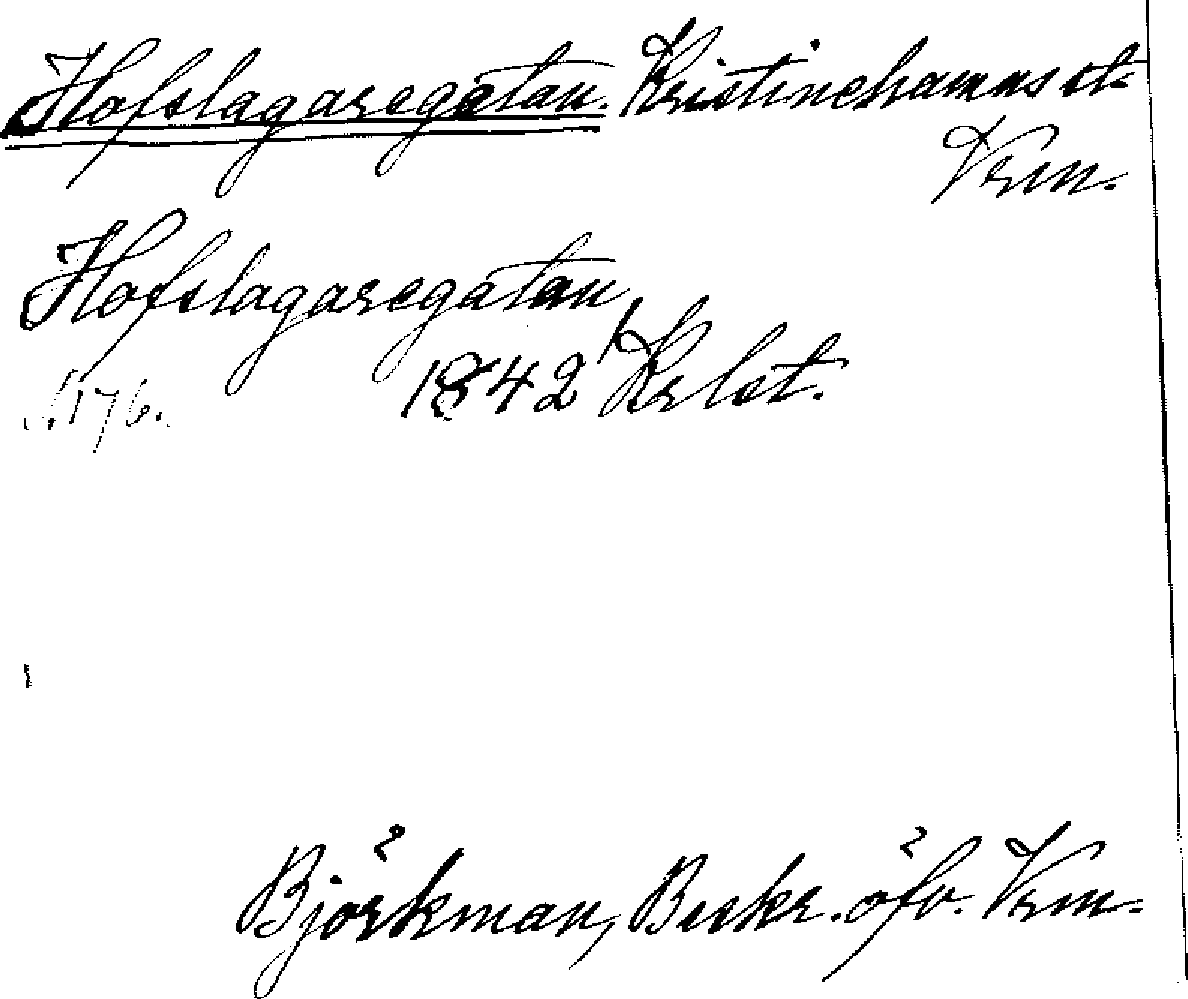 Hofslagaregatan. Kristinehamns st.
Vrm.
Hofslagaregatan,
1842 Krlst.
s. 176.
Björkman, Beskr. öfv. Vrm.